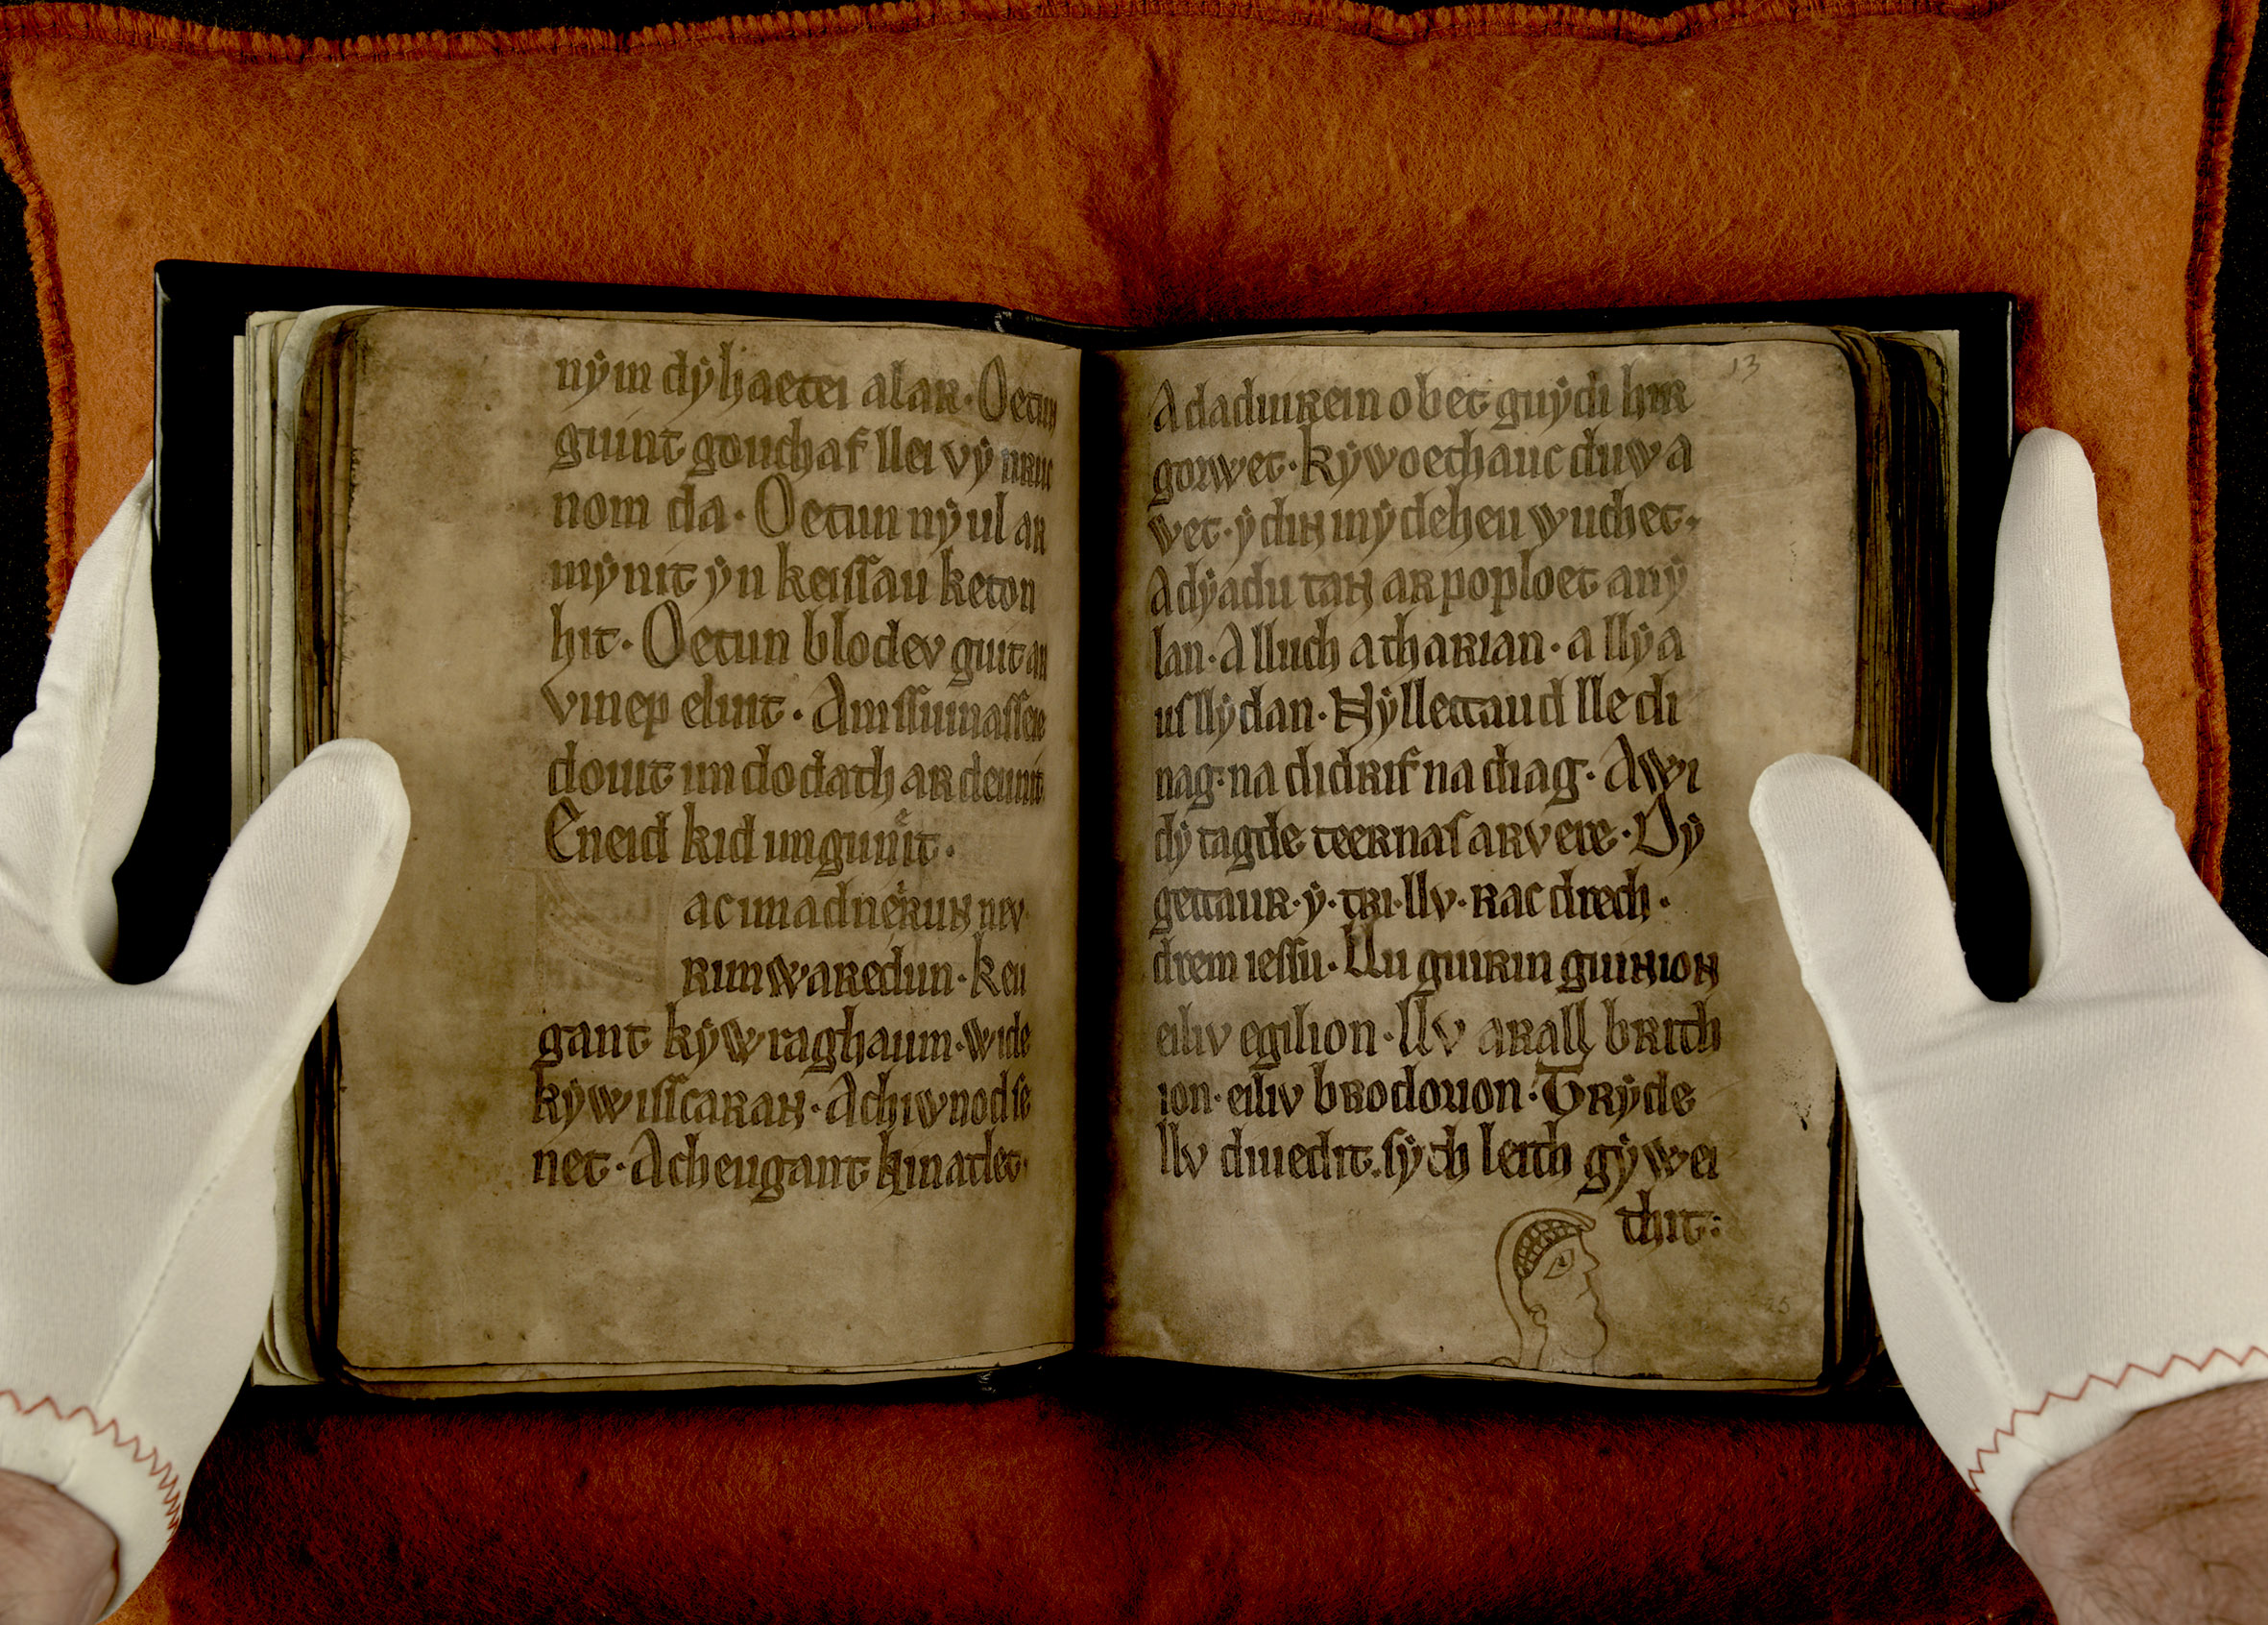 nẏm dẏhaetei alar. Oetun
guint gouchaf llei vẏ
nom da. Oetun nẏ ul ar
mẏnit ẏn keissau keton
hit. Oetun blodev guit ar
vinep eluit. Amssuinassei
douit im do dath ar deunit.
Eneid kid im guneit.
ac imadneirun nev
Run waredun. Keu
gant kẏwraghaun. wide
kẏwisscaran. Achiwnodse
net. Acheugant kinatlet.
13
A daduirein o bet guẏdi hir
gorwet. kẏwoethauc duw a
wet. ẏ din inẏ deheu wuchet.
A dẏadu tan ar poploet anẏ
lan. A lluch a tharian. a llẏa
us llẏdan. Nẏllettaud lle di
nag. na didrif na diag. A wi
dẏ tagde teernas arvere. Dẏ
gettaur. ẏ. tri. llv. Rac drech.
drem iessu. Llu guirin guinion
eiliv egilion. llv arall brith
ion. eiliv brodorion. Trẏde
llv diuedit. sẏth leith gẏwei
thit: